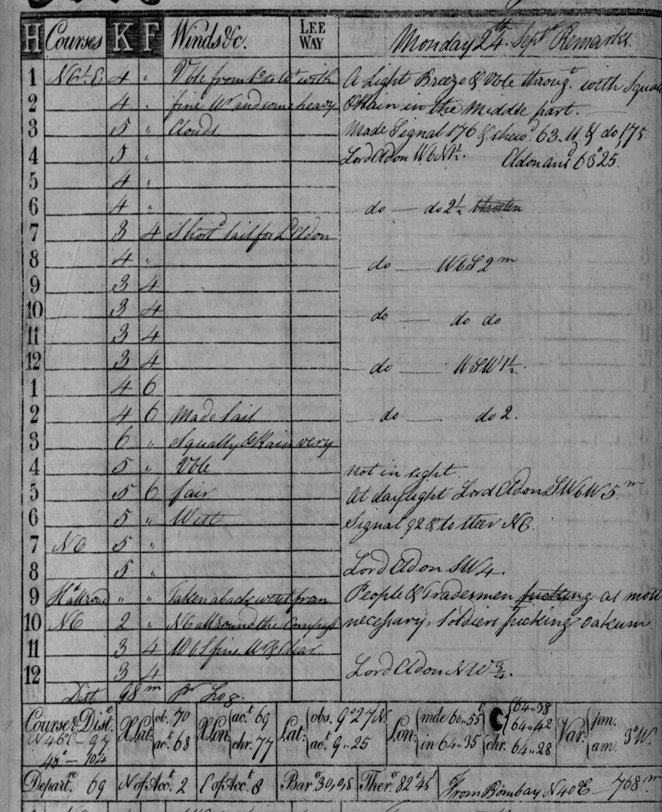 H Courses K F Winds &c. LEE WAY Monday 24th Sept. Remarks.
1 4 " Vble from to with A light Breeze & Vble throug.t with Squals
2 4 " fine Wr. and some heavy & Rain in the Middle part.
3 5 " Clouds Made Signal 176 & shew.d 63. 11 & do 175
4 5 " Lord Eldon WbN 1/2. Eldon ans.d 6 25.
5 4 "
6 4 " do — do 2 1/2
7 3 4 Short.d Sail for Ld Eldon
8 4 " do — WbS 2m
9 3 4
10 3 4 do — do do
11 3 4
12 3 4 do — WSW 1 1/2.
1 4 6
2 4 6 Made Sail do — do 2.
3 6 " Squally & Rain very
4 5 " Vble not in sight.
5 5 6 fair At daylight Lord Eldon SWbW 5m
6 5 " Signal 92 & to steer NE.
7 NE 5 "
8 5 " Lord Eldon SW 4.
9 " " Taken aback went from People & Tradesmen as most
10 NE 2 " NE all round the Compass necessary, Soldiers picking oakum
11 3 4
12 3 4 Lord Eldon NW 3/4
Dist 98m Pr Log.
Course & Dist. XLat ob. 70 XLon acct. 69 Lat. obs. 9° 27 N. Lon mde 60..55 64..38 Var. pm.
N 46 E - 97 acct. 68 chr. 77 acct. 9..25 in 64..35 chr. 64..42 am. 3° W.
45 - 104 64..28
Depart. 69 N of Acct. 2 E of Acct. 8 Bar° 30,05 Ther. 82°45 From Bombay N 40° E — 768m